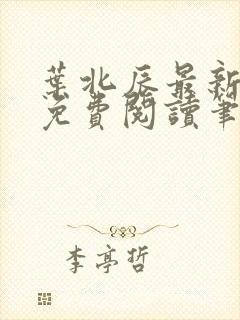 葉北辰最新
免費閱讀筆
李亭哲